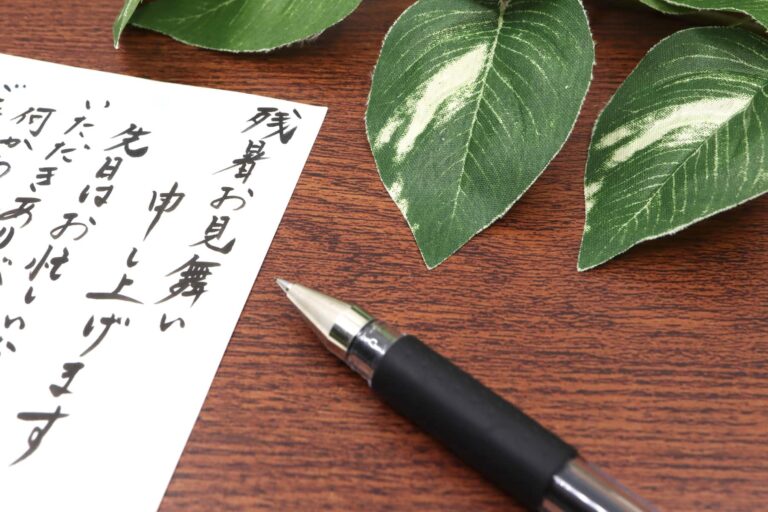 残暑お見舞い
申し上げます
先日はお忙しいな
いただきありが
何かわ